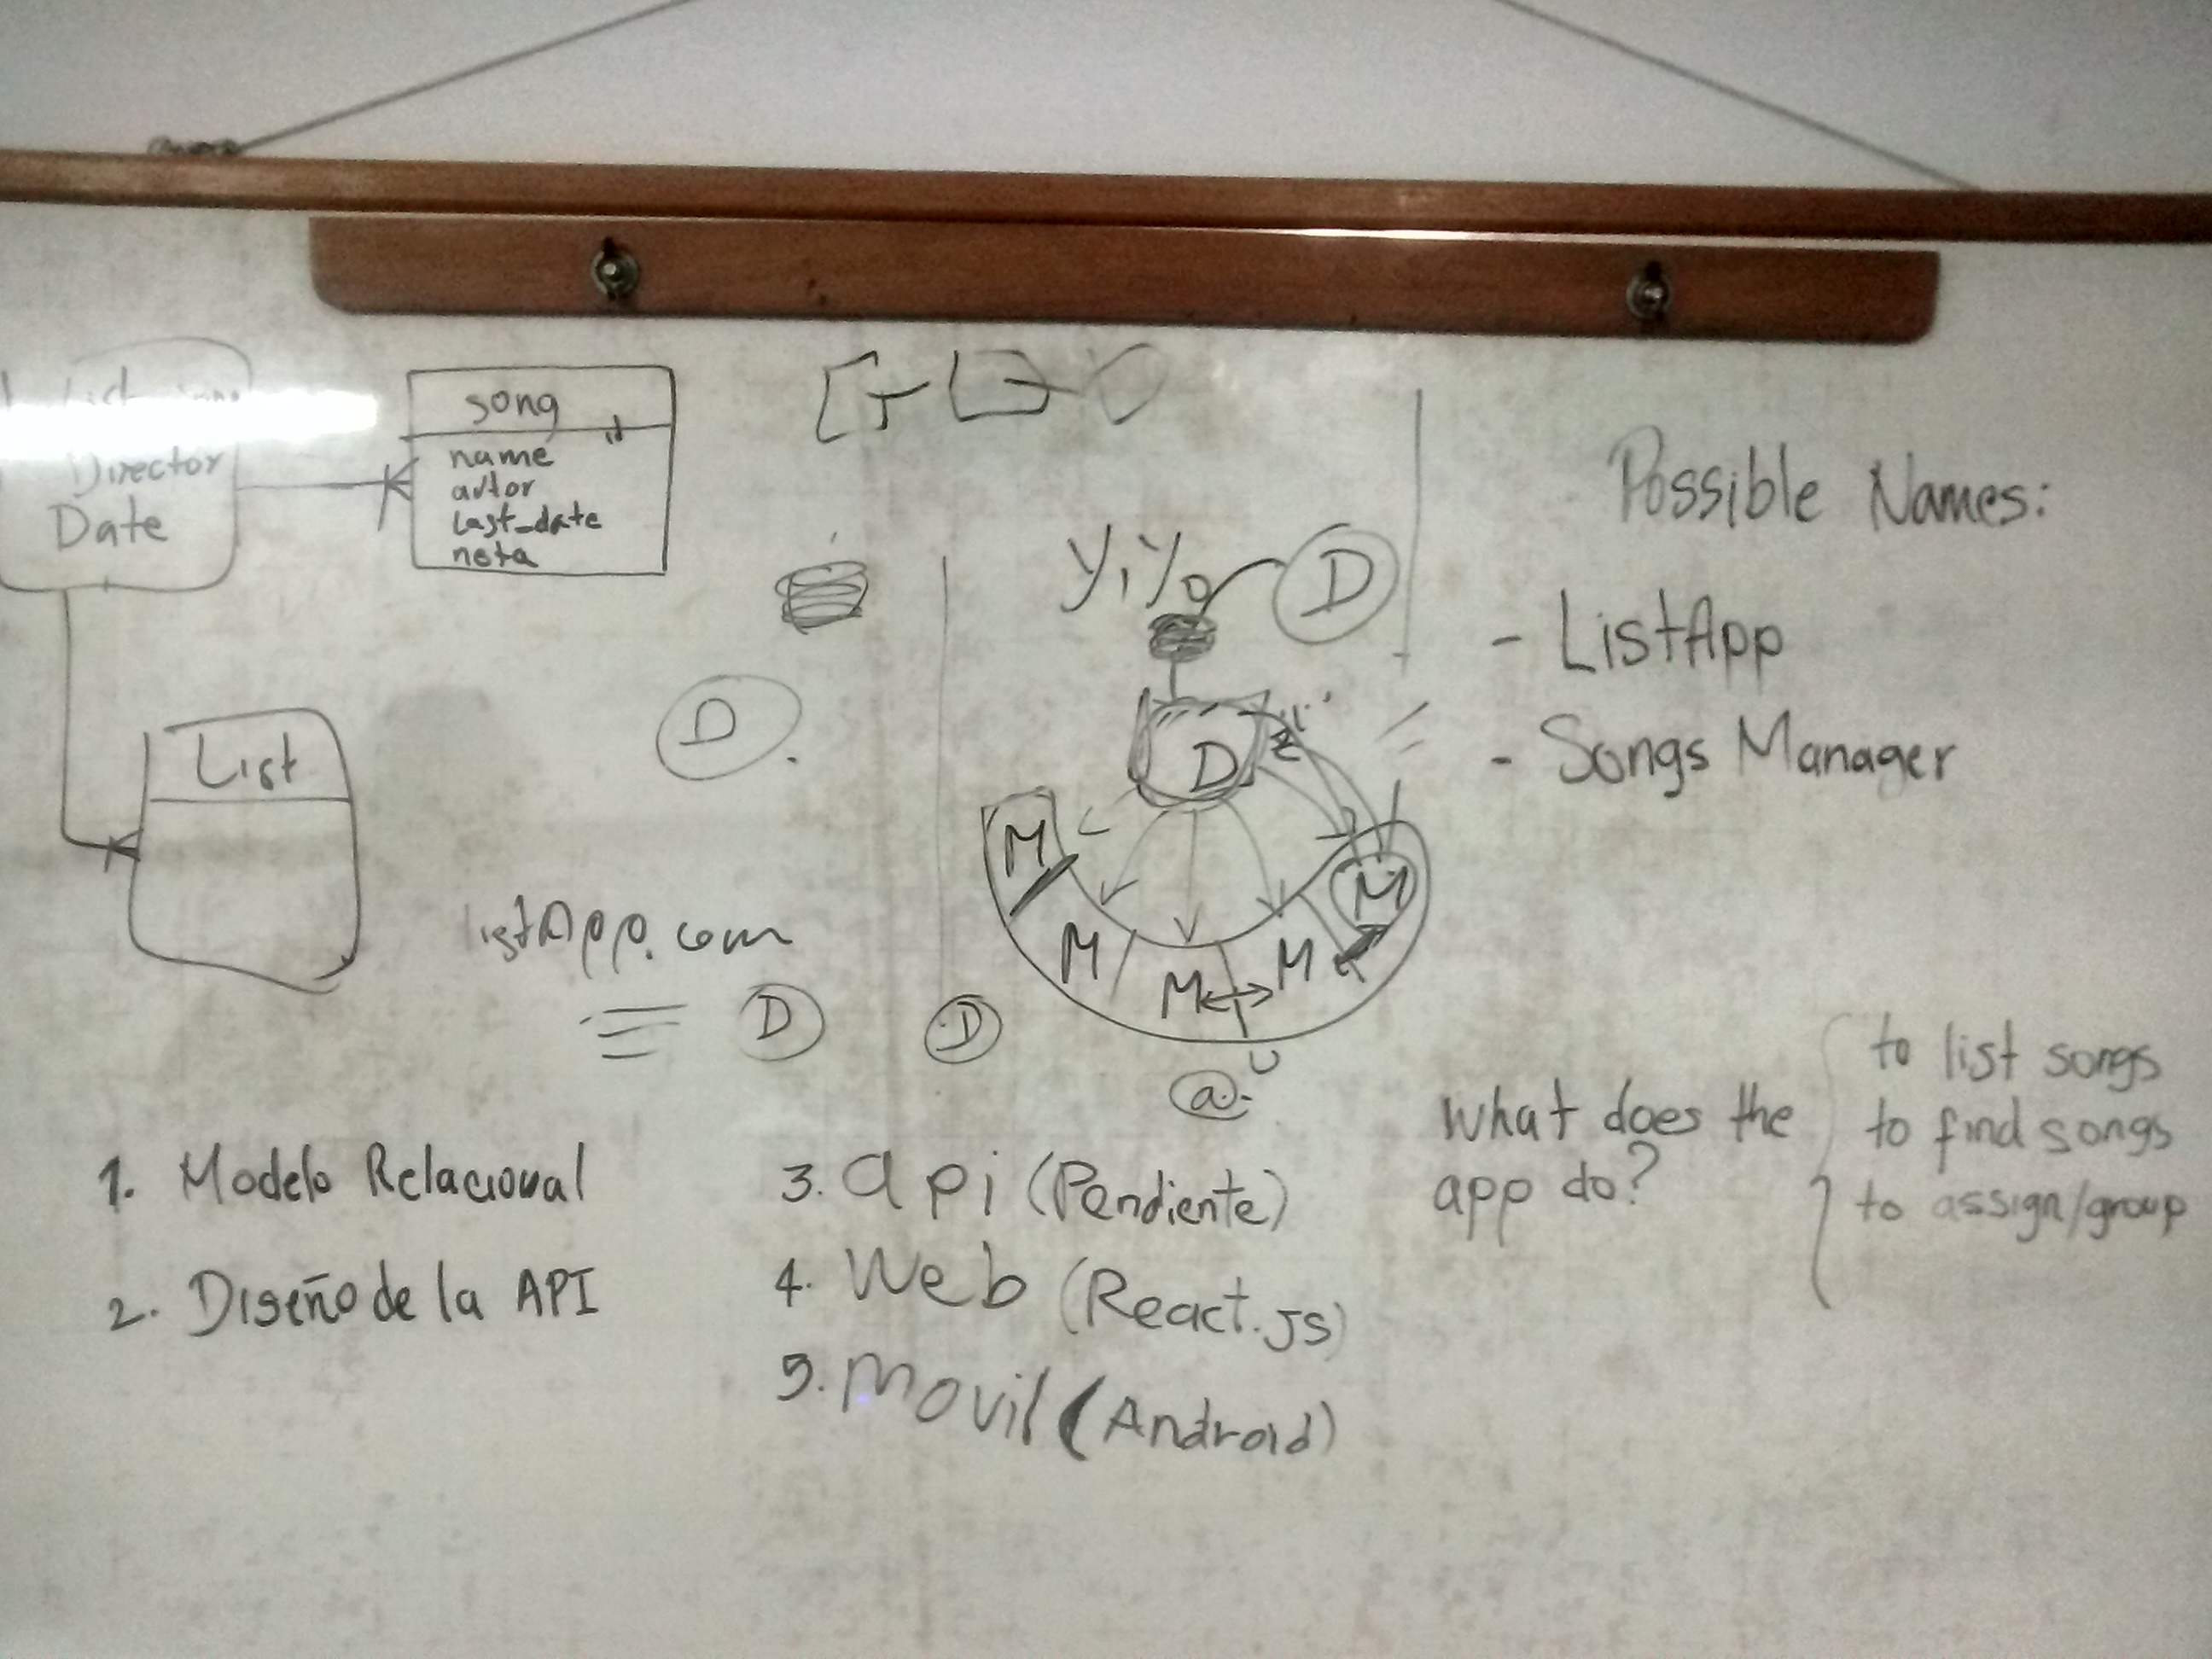 Director
Date
song
id
name
autor
last_date
nota
List
listApp.com
D
D
D
Yiyo
D
D
M
M
M
M
M
@
Possible Names:
- ListApp
- Songs Manager
What does the
app do?
to list songs
to find songs
to assign/group
1. Modelo Relacional
2. Diseño de la API
3. api (Pendiente)
4. Web (React.js)
5. Movil (Android)